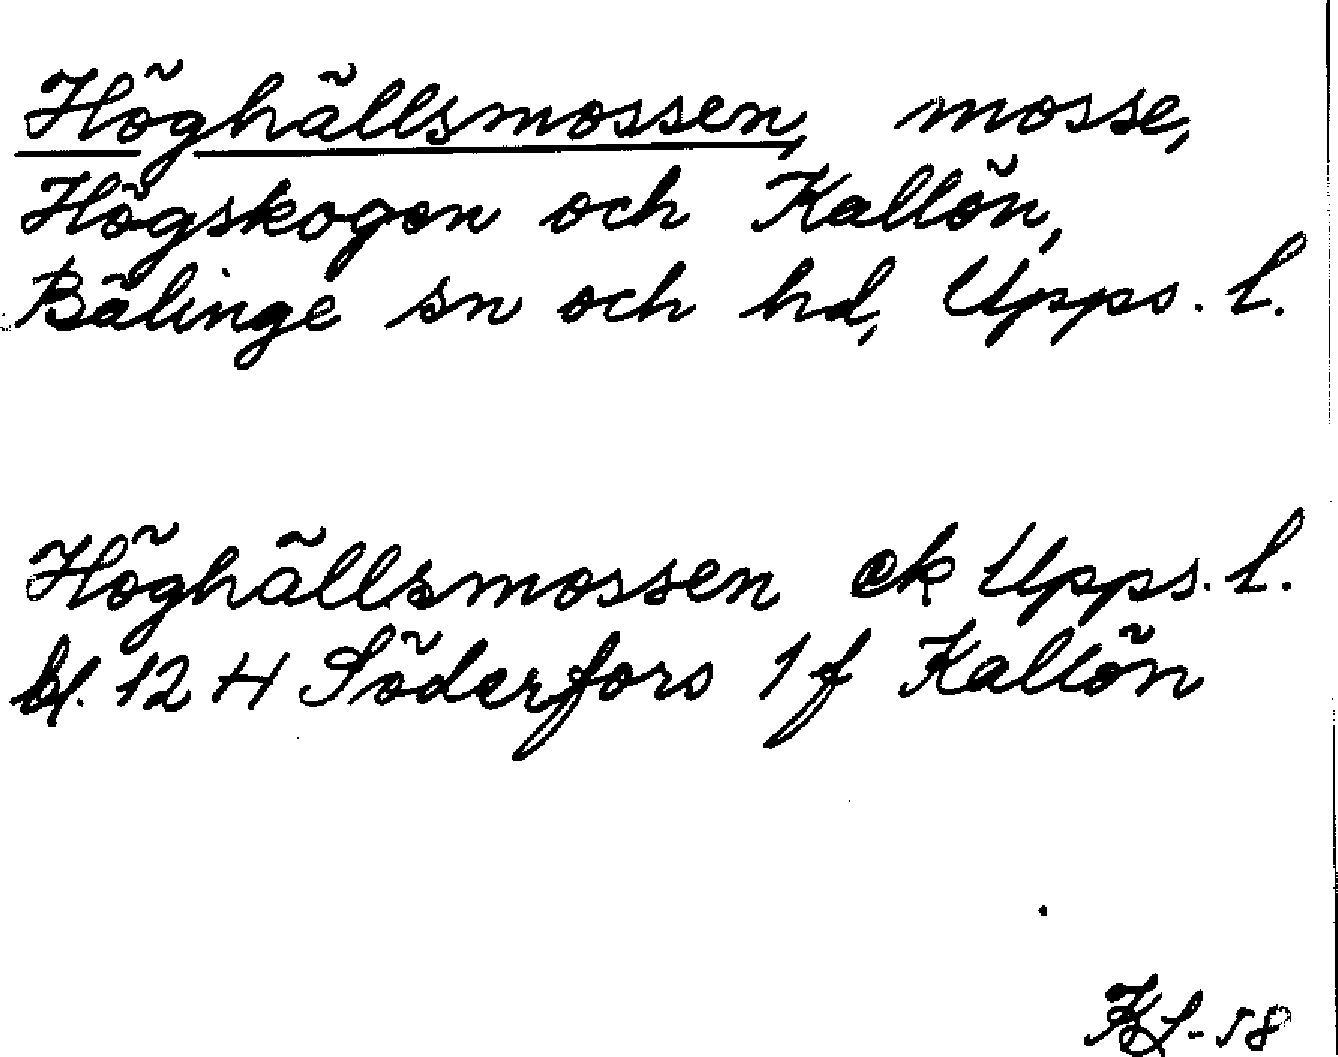 Höghällsmossen, mosse,
Högskogen och Kallön,
Bälinge sn och hd, Upps. l.
Höghällsmossen ek Upps. l.
bl. 12 H Söderfors 1 f Kallön
KL-58